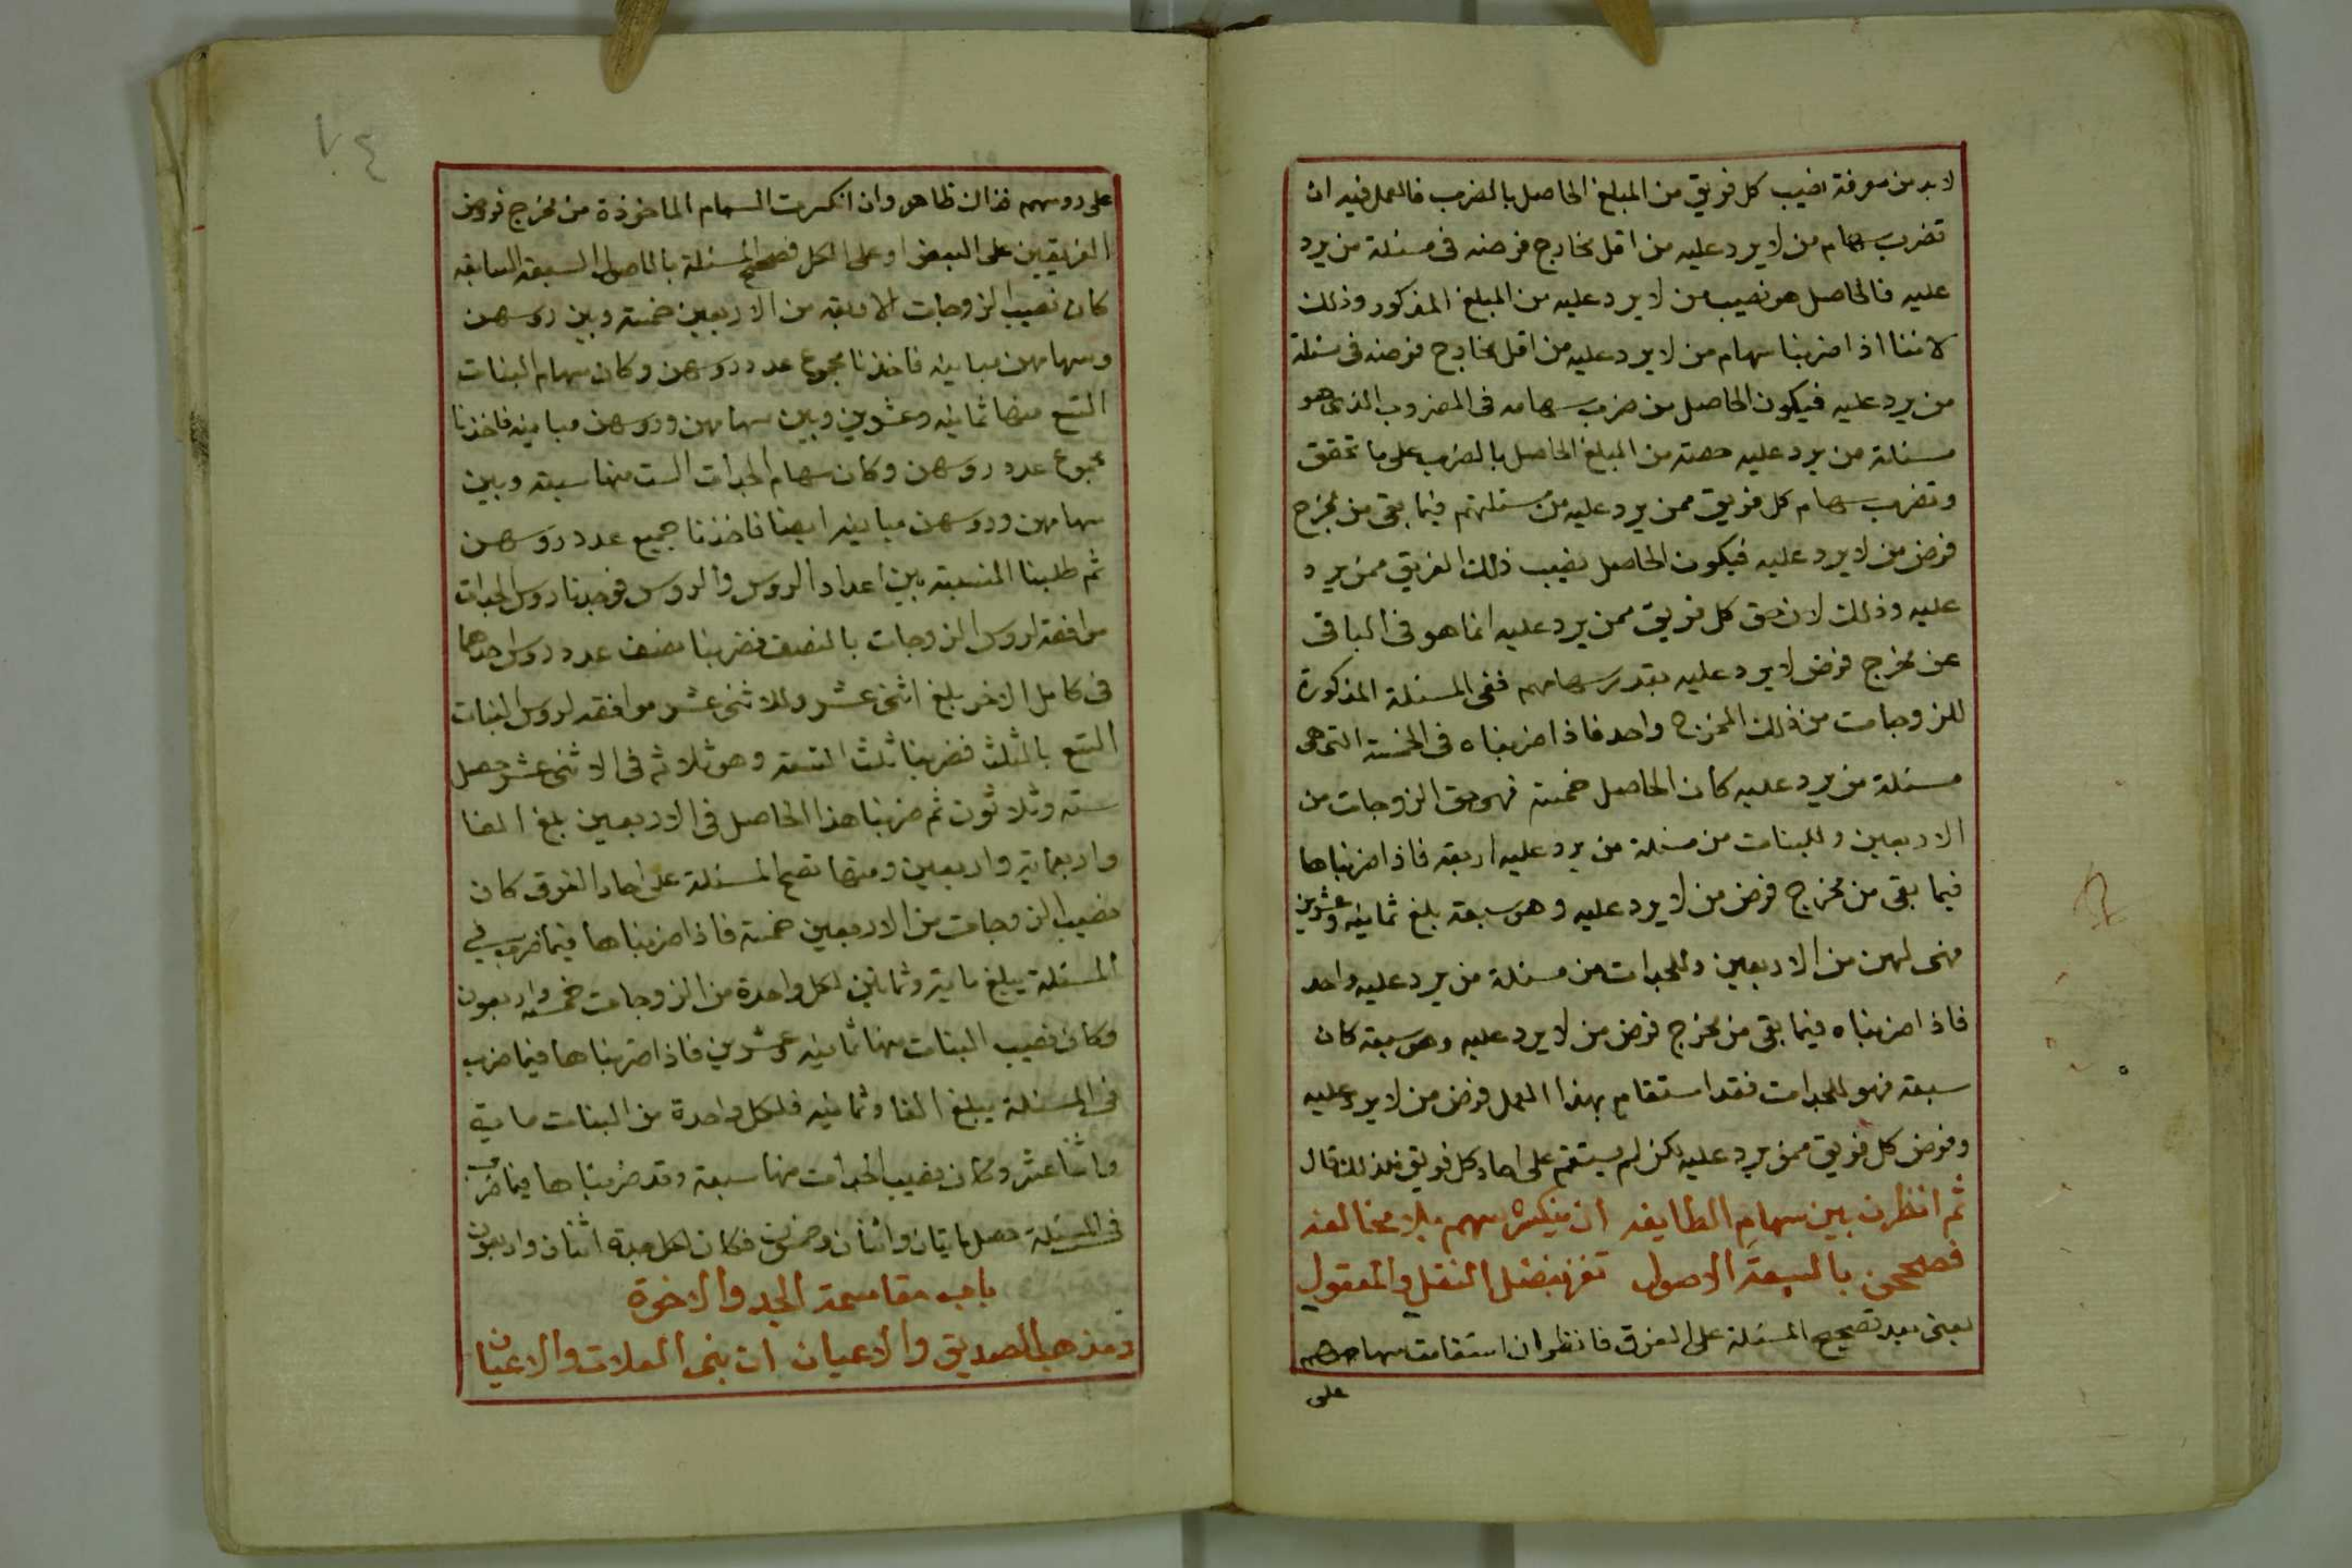 لا بد من معرفة نصيب كل فريق من المبلغ الحاصل بالضرب فالعمل فيه ان
تضرب سهام من لا يرد عليه من اقل مخارج فرضه في مسئلة من يرد
عليه فالحاصل هو نصيب من لا يرد عليه من المبلغ المذكور وذلك
لاننا اذا ضربنا سهام من لا يرد عليه من اقل مخارج فرضه في مسئلة
من يرد عليه فيكون الحاصل من ضرب سهامه في المضروب الذي هو
مسئلة من يرد عليه حصته من المبلغ الحاصل بالضرب على ما تحقق
وتضرب سهام كل فريق ممن يرد عليه من مسئلتهم فيما بقى من مخرج
فرض من لا يرد عليه فيكون الحاصل نصيب ذلك الفريق ممن يرد
عليه وذلك لان حق كل فريق ممن يرد عليه انما هو في الباقى
عن مخرج فرض لا يرد عليه بقدر سهامهم ففى المسئلة المذكورة
للزوجات من ذلك المخرج واحد فاذا ضربناه في الخمسة التى هى
مسئلة من يرد عليه كان الحاصل خمسة فهو حق الزوجات من
الاربعين وللبنات من مسئلة من يرد عليه اربعة فاذا ضربناها
فيما بقى من مخرج فرض من لا يرد عليه وهو سبعة بلغ ثمانيه وعشرين
فهى لهن من الاربعين وللجدات من مسئلة من يرد عليه واحد
فاذا ضربناه فيما بقى من مخرج فرض من لا يرد عليه وهو سبعة كان
سبعة فهو للجدات فقد استقام بهذا العمل فرض من لا يرد عليه
وفرض كل فريق ممن يرد عليه لكن لم يستقم على احاد كل فريق فلذلك قال
ثم انظرن بين سهام الطايفه ان ينكسر سهم بلا مخالفه
فصححن بالسبعة الاصول تفز بفضل النقل والمعقول
يعنى بعد تصحيح المسئلة على الفرق فانظر ان استقامت سهامهم
على
٧٤
على روسهم فذلك ظاهر وان انكسرت السهام الماخوذة من مخرج فروض
الفريقين على البعض او على الكل فصحح المسئلة بالاصول السبعة السابقه
كان نصيب الزوجات الاربعه من الاربعين خمسة وبين روسهن
وسهامهن مباينه فاخذنا مجموع عدد روسهن وكان سهام البنات
التسع منها ثمانيه وعشرين وبين سهامهن وروسهن مباينه فاخذنا
مجموع عدد روسهن وكان سهام الجدات الست منها سبعة وبين
سهامهن وروسهن مباينه ايضا فاخذنا جميع عدد روسهن
ثم طلبنا النسبة بين اعداد الروس والروس فوجدنا روس الجدات
موافقة لروس الزوجات بالنصف فضربنا نصف عدد روس احدهما
في كامل الاخر بلغ اثنى عشر والاثنى عشر موافقه لروس البنات
التسع بالثلث فضربنا ثلث التسعة وهو ثلاثه في الاثنى عشر حصل
سته وثلاثون ثم ضربنا هذا الحاصل في الاربعين بلغ الفا
واربعماية واربعين ومنها تصح المسئلة على احاد الفرق كان
نصيب الزوجات من الاربعين خمسة فاذا ضربناها فيما ضرب في
المسئلة يبلغ ماية وثمانين لكل واحدة من الزوجات خمسه واربعون
وكان نصيب البنات منها ثمانيه وعشرين فاذا ضربناها فيما ضرب
في المسئلة يبلغ الفا وثمانيه فلكل واحدة من البنات ماية
واثنا عشر وكان نصيب الجدات منها سبعة وقد ضربناها فيما ضرب
في المسئلة حصل مايتان واثنان وخمسون فكان لكل جدة اثنان واربعون
باب مقاسمة الجد والاخوة
ومذهب الصديق والاعيان ان بنى العلات والاعيان